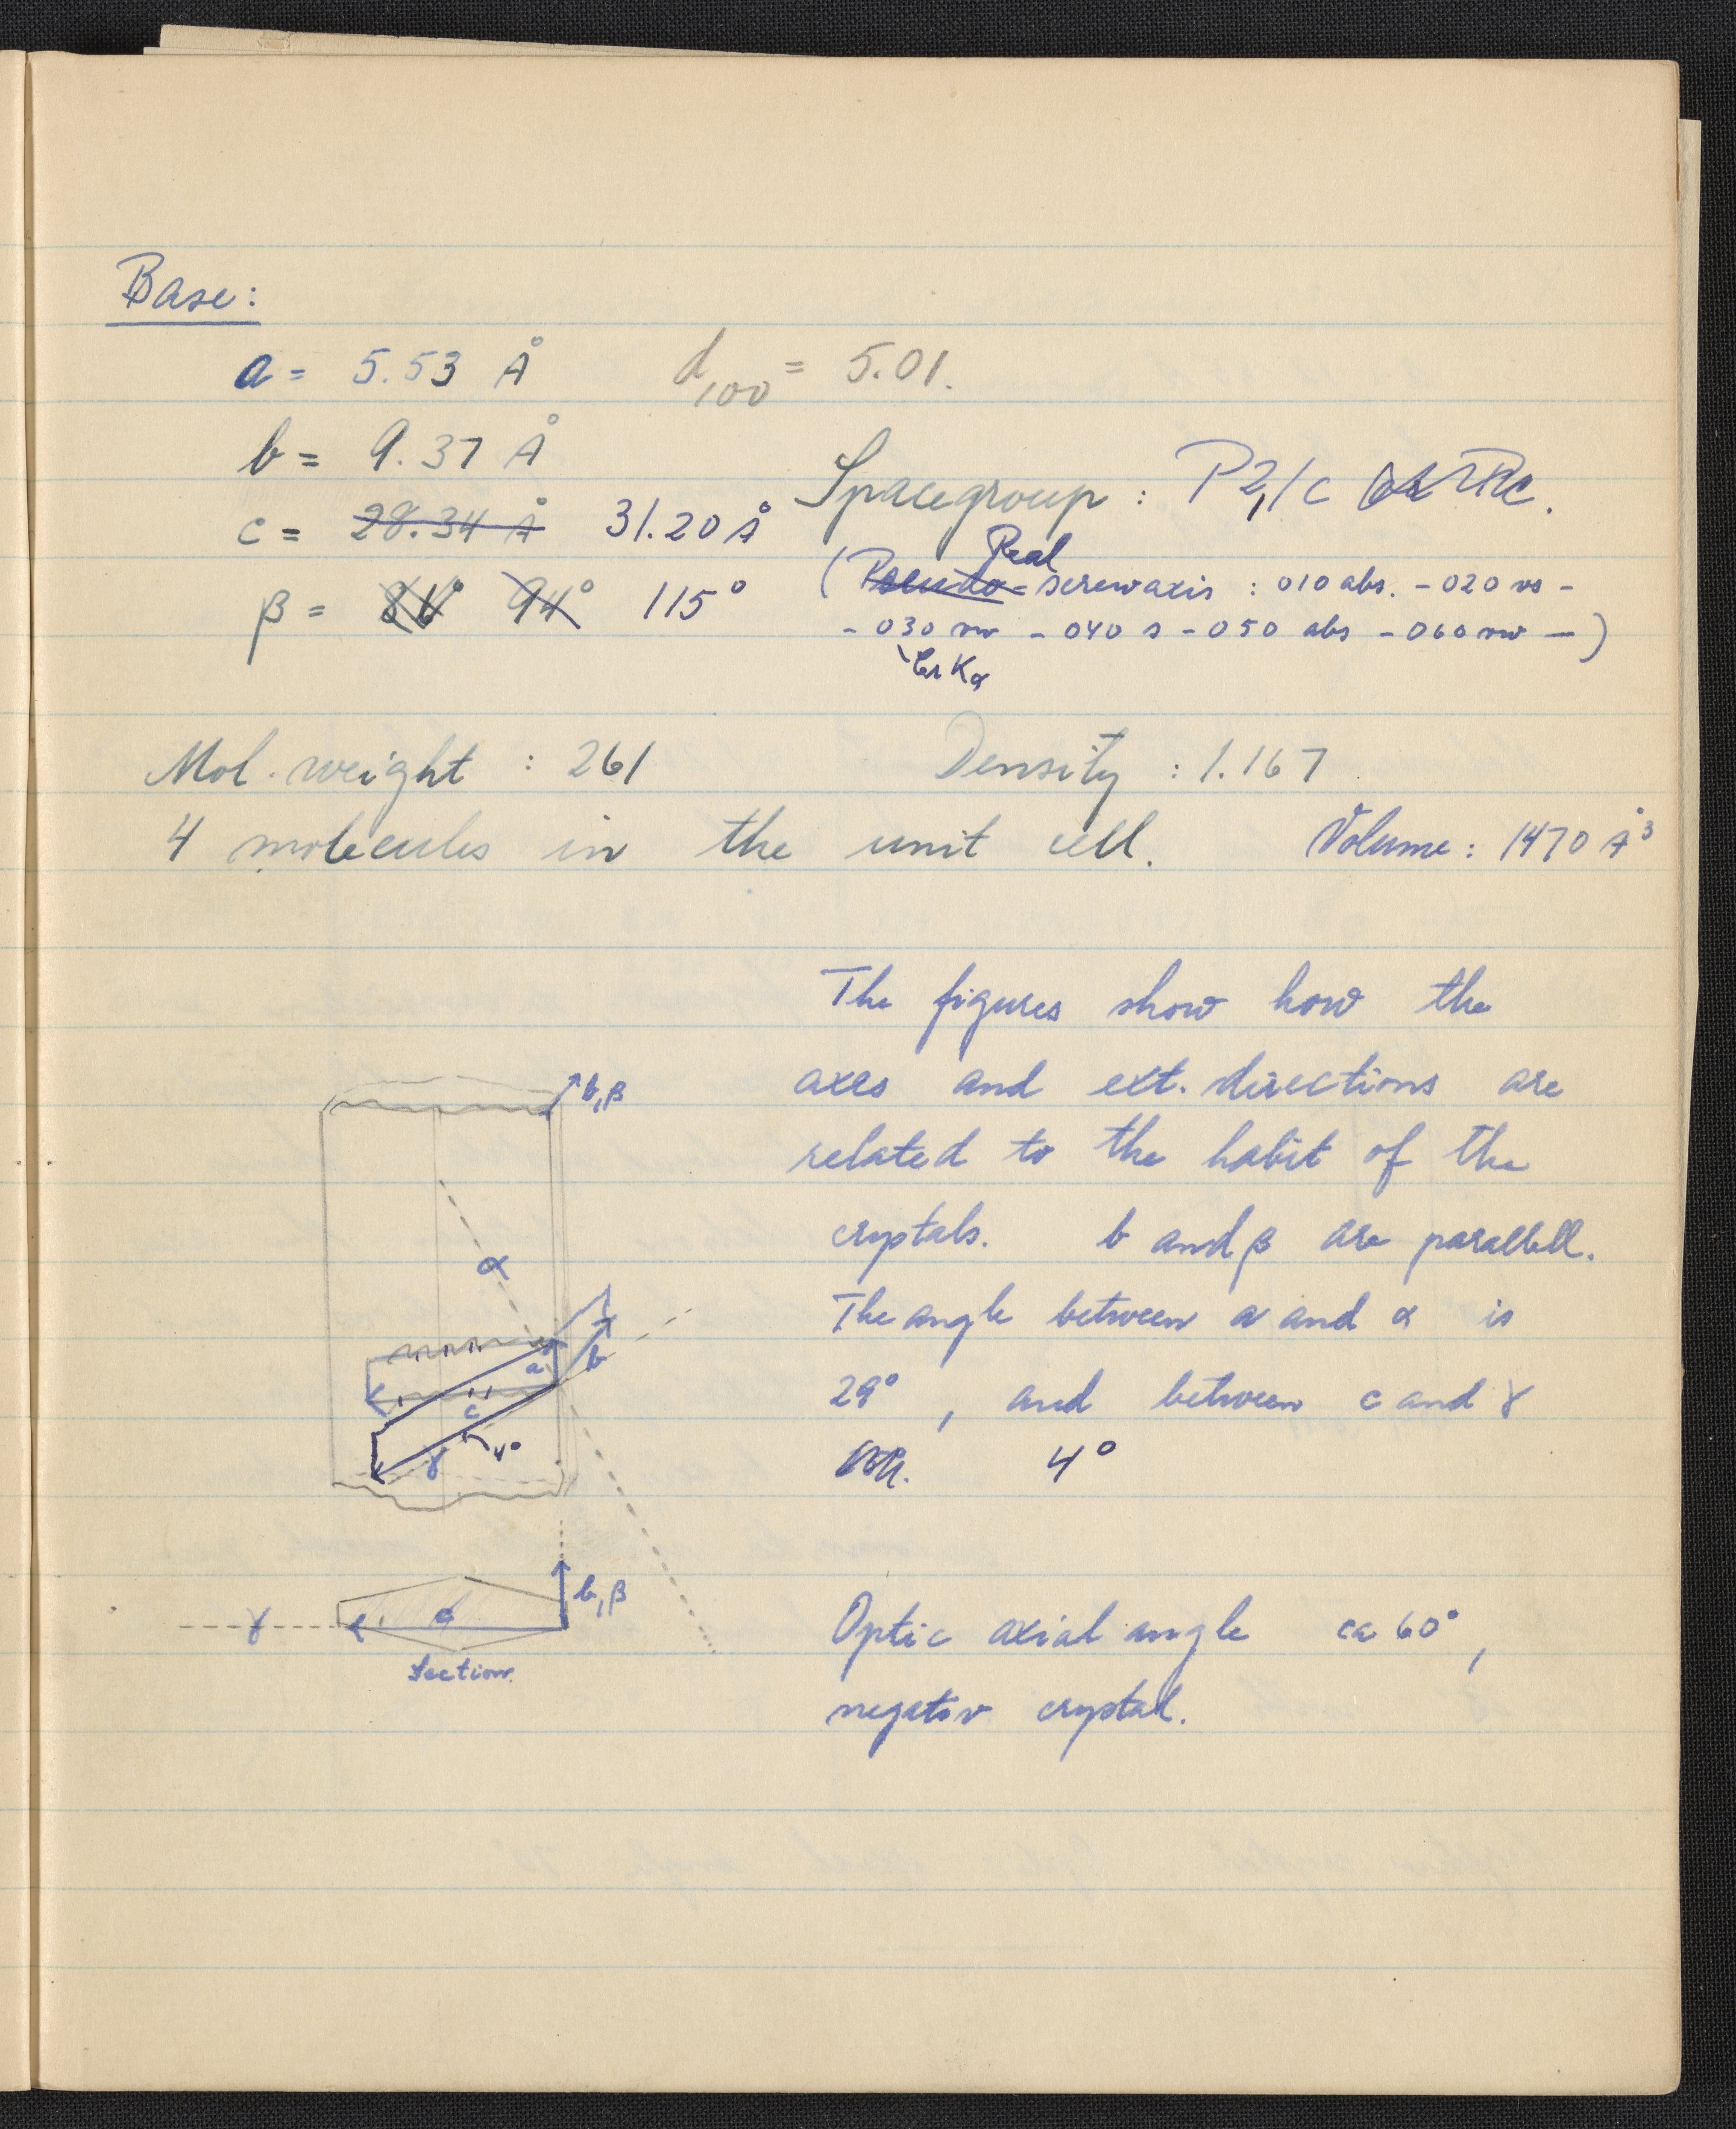 Base:
a = 5.53 Å d100 = 5.01.
b = 9.37 Å
Spacegroup : P2₁/c
c = 28.34 Å 31.20 Å
Real
(Pseudo-screwaxis : 010 abs. - 020 vs -
β = 81° 94° 115°
- 030 vw - 040 s - 050 abs - 060 vw — )
Cr Kα
Mol. weight : 261 Density : 1.167
4 molecules in the unit cell. Volume : 1470 Å³
The figures show how the
axes and ext. directions are
related to the habit of the
crystals. b and β are parallell.
The angle between a and α is
29° , and between c and γ
4°
b,β
α
a b
c
γ 4°
b,β
γ c
Section.
Optic axial angle ca 60°,
negativ crystal.